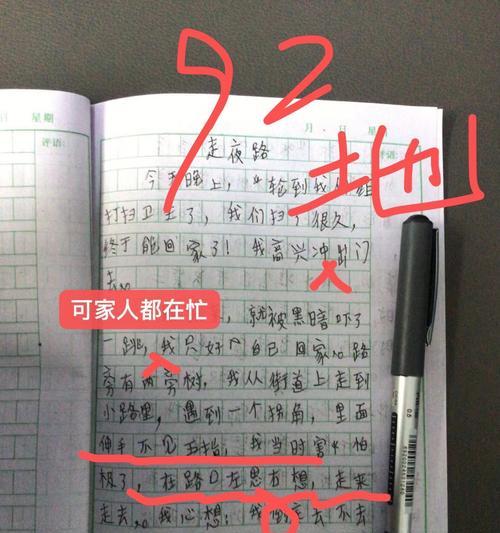 92
地
星期
评语:
月 日 星期
评语:
走夜路
今天晚上,轮到我们组
打扫卫生了,我们扫了很久,
终于能回家了!我高兴冲出门
去。
可家人都在忙
就被黑暗吓了
一跳,我只好自己回家。路
旁有两旁树,我从街道上走到
小路里,遇到一个拐角,里面
伸手不见五指,我当时害怕
极了,在路口左思右想,走来
走去。我心想:我到底去不去
0.5